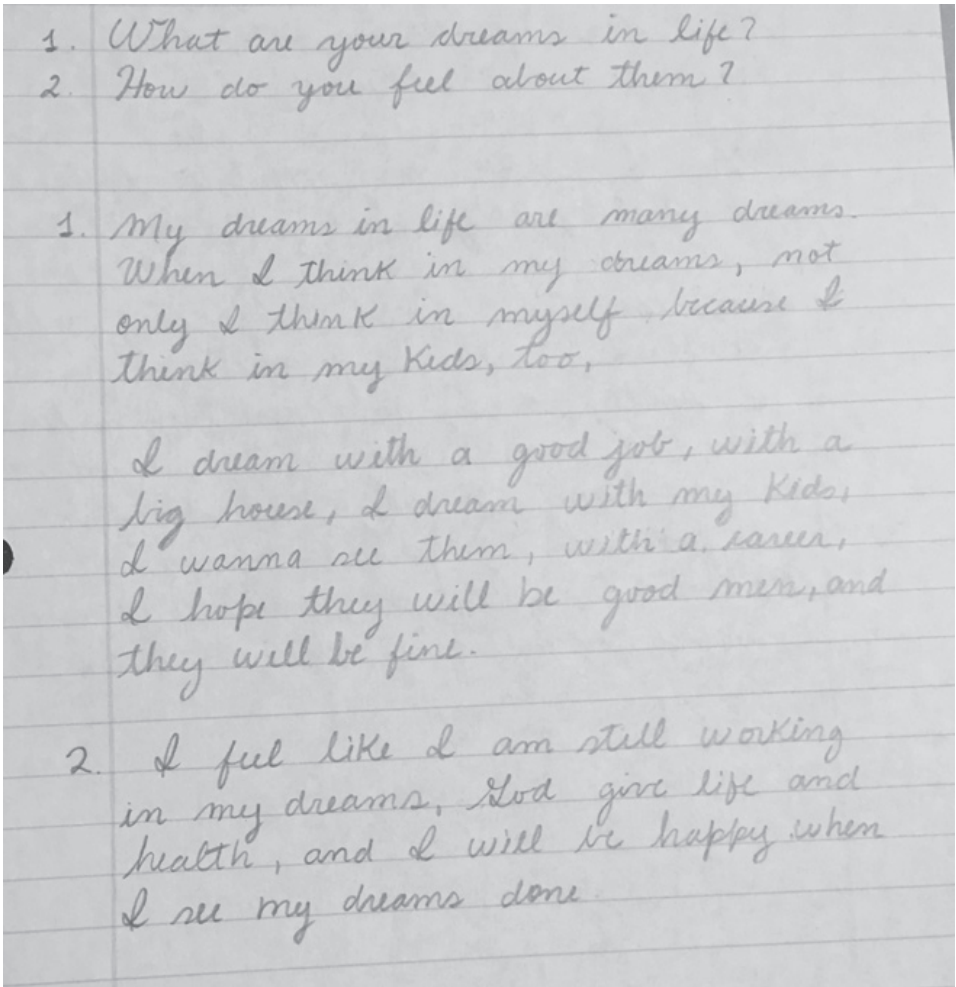 1. What are your dreams in life?
2. How do you feel about them?
1. My dreams in life are many dreams.
When I think in my dreams, not
only I think in myself because I
think in my Kids, too,
I dream with a good job, with a
big house, I dream with my Kids,
I wanna see them, with a career,
I hope they will be good men, and
they will be fine.
2. I feel like I am still working
in my dreams, God give life and
health, and I will be happy when
I see my dreams done.